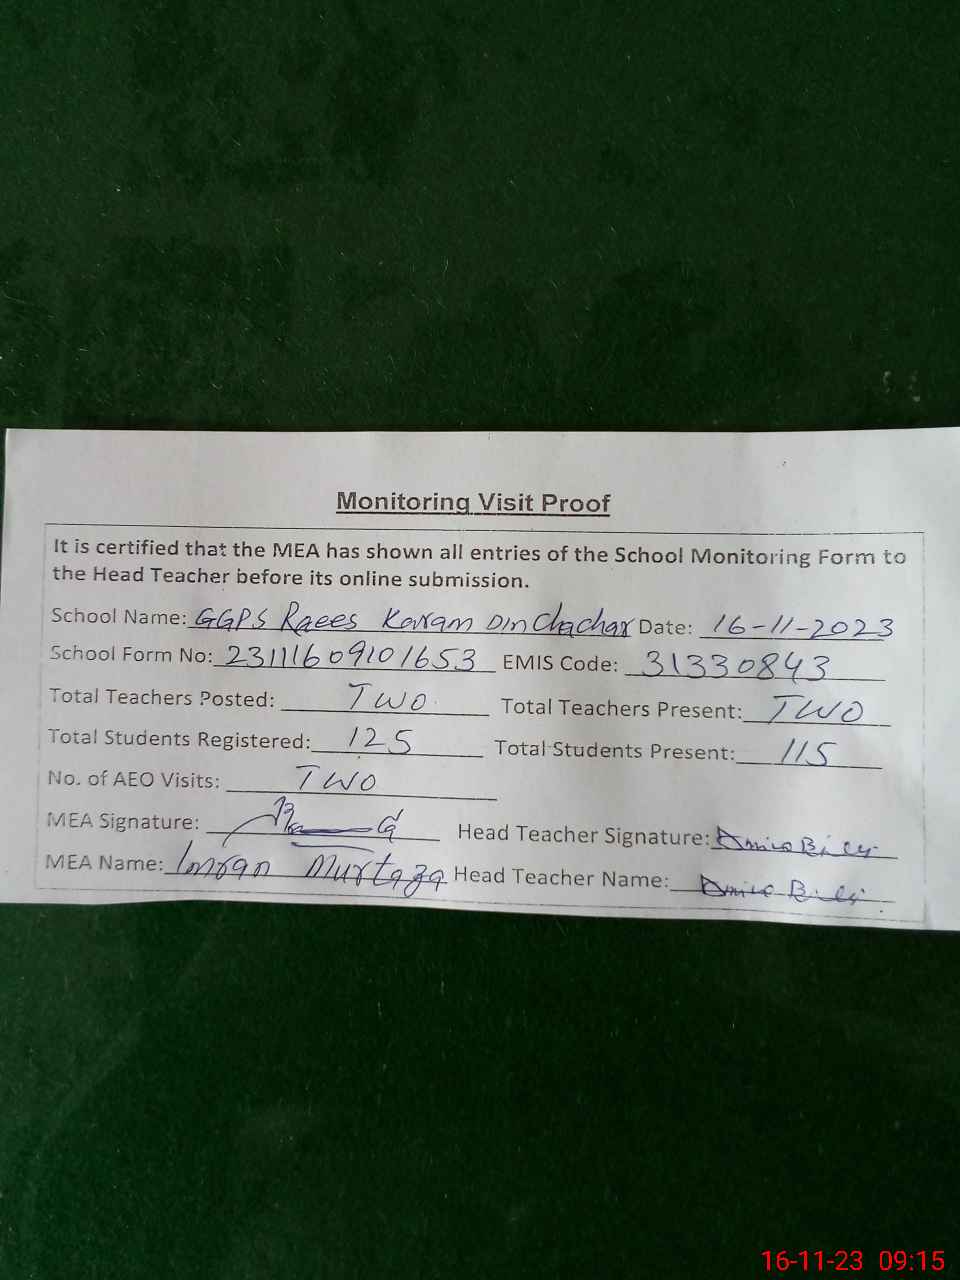 Monitoring Visit Proof
It is certified that the MEA has shown all entries of the School Monitoring Form to
the Head Teacher before its online submission.
School Name: GGPS Raees Karam Din Chachar Date: 16-11-2023
School Form No: 23111609101653 EMIS Code: 31330843
Total Teachers Posted: TWO Total Teachers Present: TWO
Total Students Registered: 125 Total Students Present: 115
No. of AEO Visits: TWO
MEA Signature: Head Teacher Signature:
MEA Name: Imran Murtaza Head Teacher Name:
16-11-23 09:15